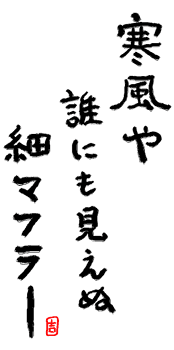 寒風や
誰にも見えぬ
細マフラー
吉